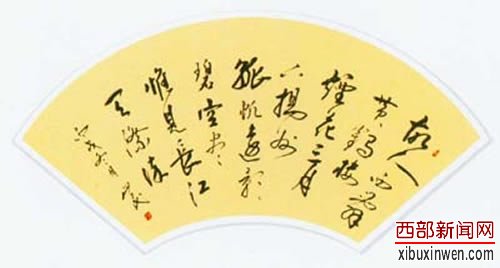 故人西辞
黄鶴樓
煙花三月
下揚州
孤帆遠影
碧空尽
惟見長江
天際流
西部新闻网
xibuxinwen.com